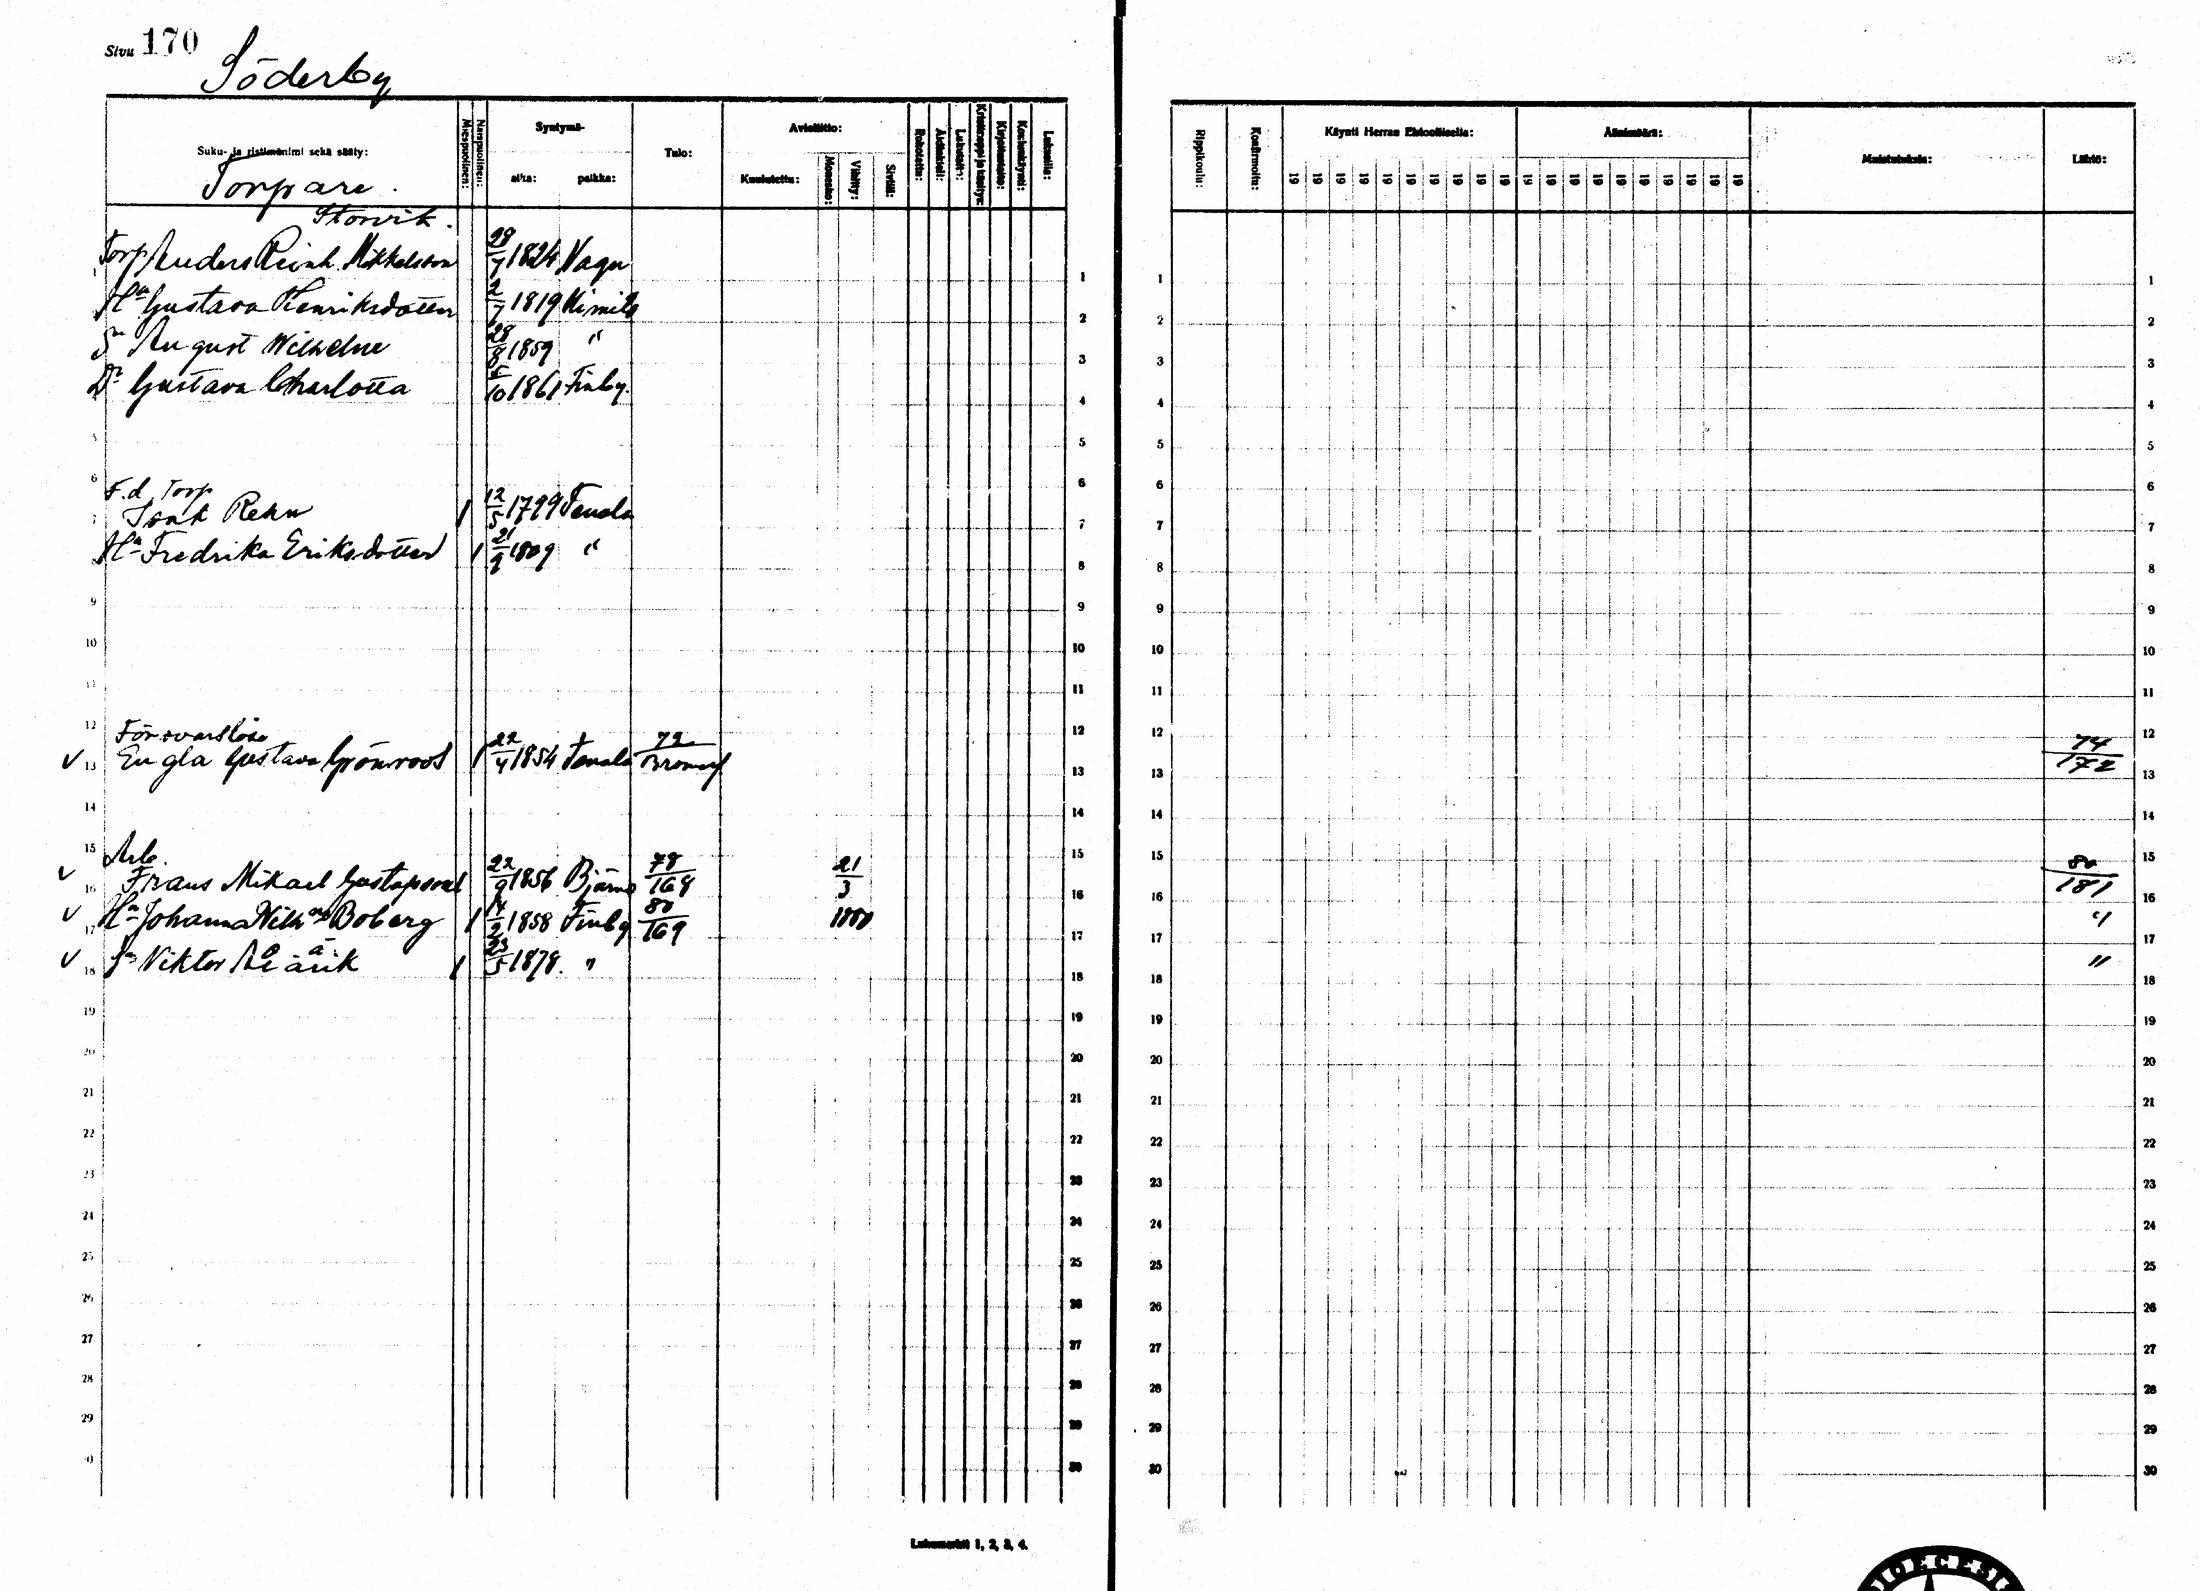 Sivu 170
Söderby
Suku- ja ristimänimi sekä sääty:
Miespuolinen:
Naispuolinen:
Syntymä-
aika:
paikka:
Tulo:
Avioliitto:
Kuulutettu:
Vihitty:
Siviili:
Rokotettu:
Lukusija:
Torpare.
Storvik.
Torp Anders Reinh. Mikkelsson 28/7 1824 Nagu 1
Hu Gustava Henriksdotter 2/7 1819 Kimito 2
Sn August Wilhelm 28/8 1859 " 3
Dr Gustava Charlotta 5/10 1861 Finby. 4
5 5
6 F.d. Torp 6
7 Isak Renn 1 12/5 1799 Tenala 7
8 Hu Fredrika Eriksdotter 1 21/9 1809 " 8
9 9
10 10
11 11
12 Försvarslösa 12
13 Engla Gustava Grönroos 1 22/4 1854 Tenala 72/Bromarf 13
14 14
15 Arb. 15
16 Frans Mikael Gustafsson 1 22/9 1856 Bjärno 78/168 21/3 16
17 Hu Johanna Wilhna Boberg 1 14/2 1858 Finby 80/169 1880 17
18 Sn Viktor Alarik 1 23/5 1878. " 18
19 19
20 20
21 21
22 22
23 23
24 24
25 25
26 26
27 27
28 28
29 29
30 30
Lukumerkit 1, 2, 3, 4.
Rippikoulu:
Konfirmoitu:
Käynti Herran Ehtoollisella:
Äänimäärä:
Muistutuksia:
Lähtö:
19 19 19 19 19 19 19 19 19 19 19 19 19 19 19 19 19 19 19 19
1 1
2 2
3 3
4 4
5 5
6 6
7 7
8 8
9 9
10 10
11 11
12 12
13 74/172 13
14 14
15 15
16 80/181 16
17 " 17
18 " 18
19 19
20 20
21 21
22 22
23 23
24 24
25 25
26 26
27 27
28 28
29 29
30 30